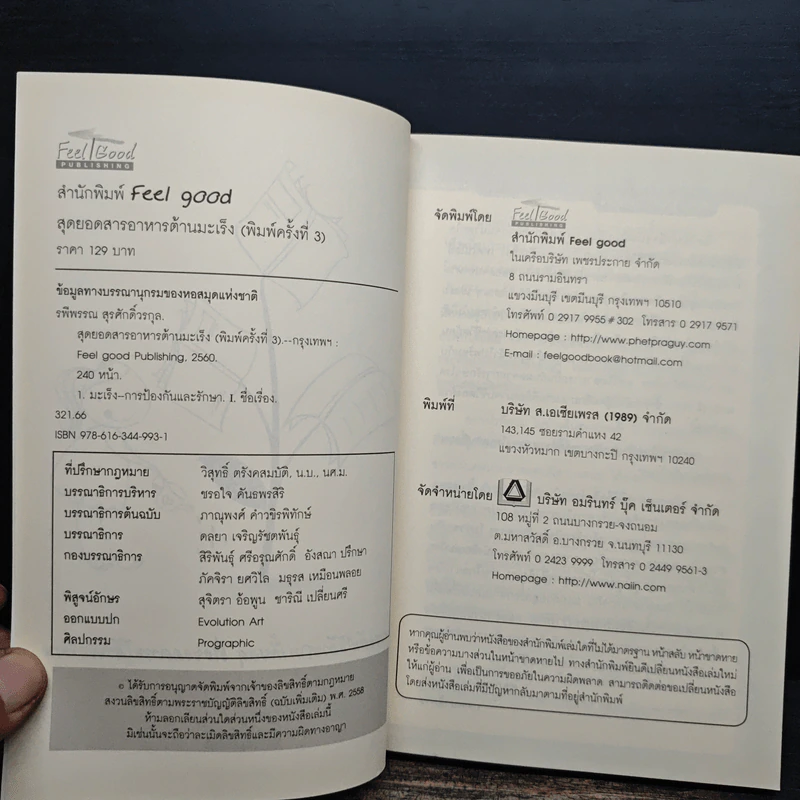 Feel Good
PUBLISHING
สำนักพิมพ์ Feel good
สุดยอดสารอาหารต้านมะเร็ง (พิมพ์ครั้งที่ 3)
ราคา 129 บาท
ข้อมูลทางบรรณานุกรมของหอสมุดแห่งชาติ
รพีพรรณ สุรศักดิ์วรกุล.
สุดยอดสารอาหารต้านมะเร็ง (พิมพ์ครั้งที่ 3).--กรุงเทพฯ :
Feel good Publishing, 2560.
240 หน้า.
1. มะเร็ง--การป้องกันและรักษา. I. ชื่อเรื่อง.
321.66
ISBN 978-616-344-993-1
ที่ปรึกษากฎหมาย วิสุทธิ์ ตรังคสมบัติ, น.บ., นศ.ม.
บรรณาธิการบริหาร ชรอใจ คันธพรสิริ
บรรณาธิการต้นฉบับ ภาณุพงศ์ คำวชิรพิทักษ์
บรรณาธิการ ดลยา เจริญรัชตพันธุ์
กองบรรณาธิการ สิริพันธุ์ ศรีอรุณศักดิ์ อังสณา ปรึกษา
ภัคจิรา ยศวิไล มธุรส เหมือนพลอย
พิสูจน์อักษร สุจิตรา อ้อพูน ชาริณี เปลี่ยนศรี
ออกแบบปก Evolution Art
ศิลปกรรม Prographic
© ได้รับการอนุญาตจัดพิมพ์จากเจ้าของลิขสิทธิ์ตามกฎหมาย
สงวนลิขสิทธิ์ตามพระราชบัญญัติลิขสิทธิ์ (ฉบับเพิ่มเติม) พ.ศ. 2558
ห้ามลอกเลียนส่วนใดส่วนหนึ่งของหนังสือเล่มนี้
มิเช่นนั้นจะถือว่าละเมิดลิขสิทธิ์และมีความผิดทางอาญา
จัดพิมพ์โดย Feel Good
PUBLISHING
สำนักพิมพ์ Feel good
ในเครือบริษัท เพชรประกาย จำกัด
8 ถนนรามอินทรา
แขวงมีนบุรี เขตมีนบุรี กรุงเทพฯ 10510
โทรศัพท์ 0 2917 9955 # 302 โทรสาร 0 2917 9571
Homepage : http://www.phetpraguy.com
E-mail : feelgoodbook@hotmail.com
พิมพ์ที่ บริษัท ส.เอเซียเพรส (1989) จำกัด
143,145 ซอยรามคำแหง 42
แขวงหัวหมาก เขตบางกะปิ กรุงเทพฯ 10240
จัดจำหน่ายโดย บริษัท อมรินทร์ บุ๊ค เซ็นเตอร์ จำกัด
108 หมู่ที่ 2 ถนนบางกรวย-จงถนอม
ต.มหาสวัสดิ์ อ.บางกรวย จ.นนทบุรี 11130
โทรศัพท์ 0 2423 9999 โทรสาร 0 2449 9561-3
Homepage : http://www.naiin.com
หากคุณผู้อ่านพบว่าหนังสือของสำนักพิมพ์เล่มใดที่ไม่ได้มาตรฐาน หน้าสลับ หน้าขาดหาย
หรือข้อความบางส่วนในหน้าขาดหายไป ทางสำนักพิมพ์ยินดีเปลี่ยนหนังสือเล่มใหม่
ให้แก่ผู้อ่าน เพื่อเป็นการขออภัยในความผิดพลาด สามารถติดต่อขอเปลี่ยนหนังสือ
โดยส่งหนังสือเล่มที่มีปัญหากลับมาตามที่อยู่สำนักพิมพ์